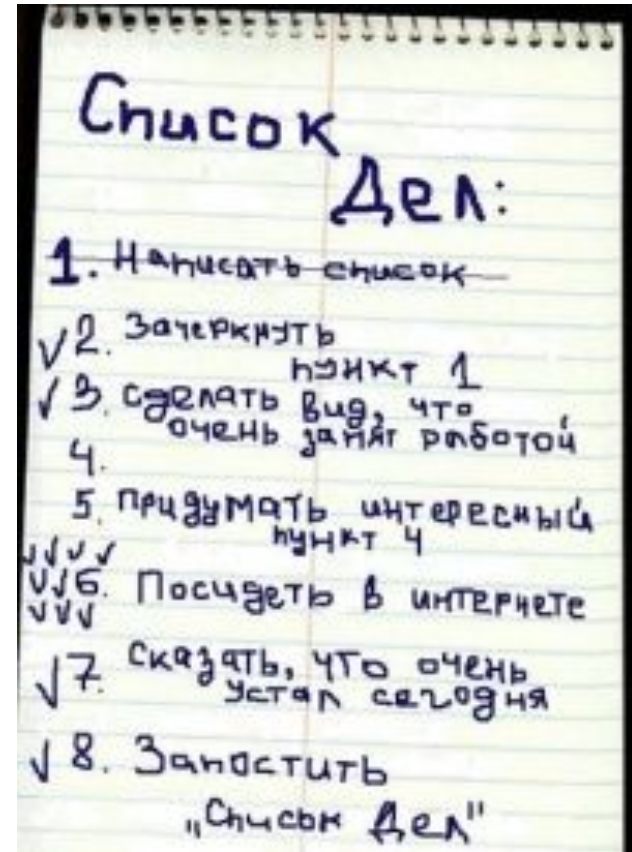 Список
Дел:
1. Написать список
√ 2. Зачеркнуть
пункт 1
√ 3. Сделать вид, что
очень занят работой
4.
5. придумать интересный
пункт 4
√√√√
√√6. Посидеть в интернете
√√√
√7. Сказать, что очень
устал сегодня
√ 8. Запостить
„Список Дел"